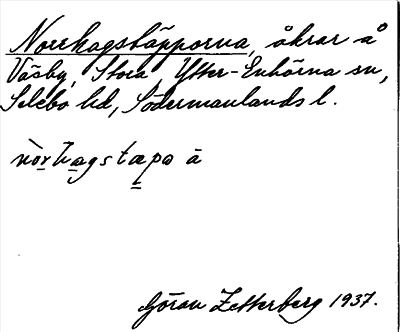 Norrhagstäpporna, åkrar å
Väsby, Stora, Ytter-Enhörna sn,
Selebo hd, Södermanlands l.
nòrhagstæpa ā
Göran Zetterberg 1937.